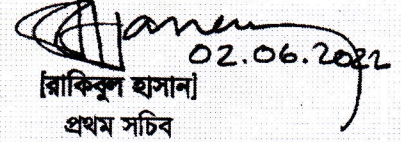 02.06.2022
[রাকিবুল হাসান]
প্রথম সচিব